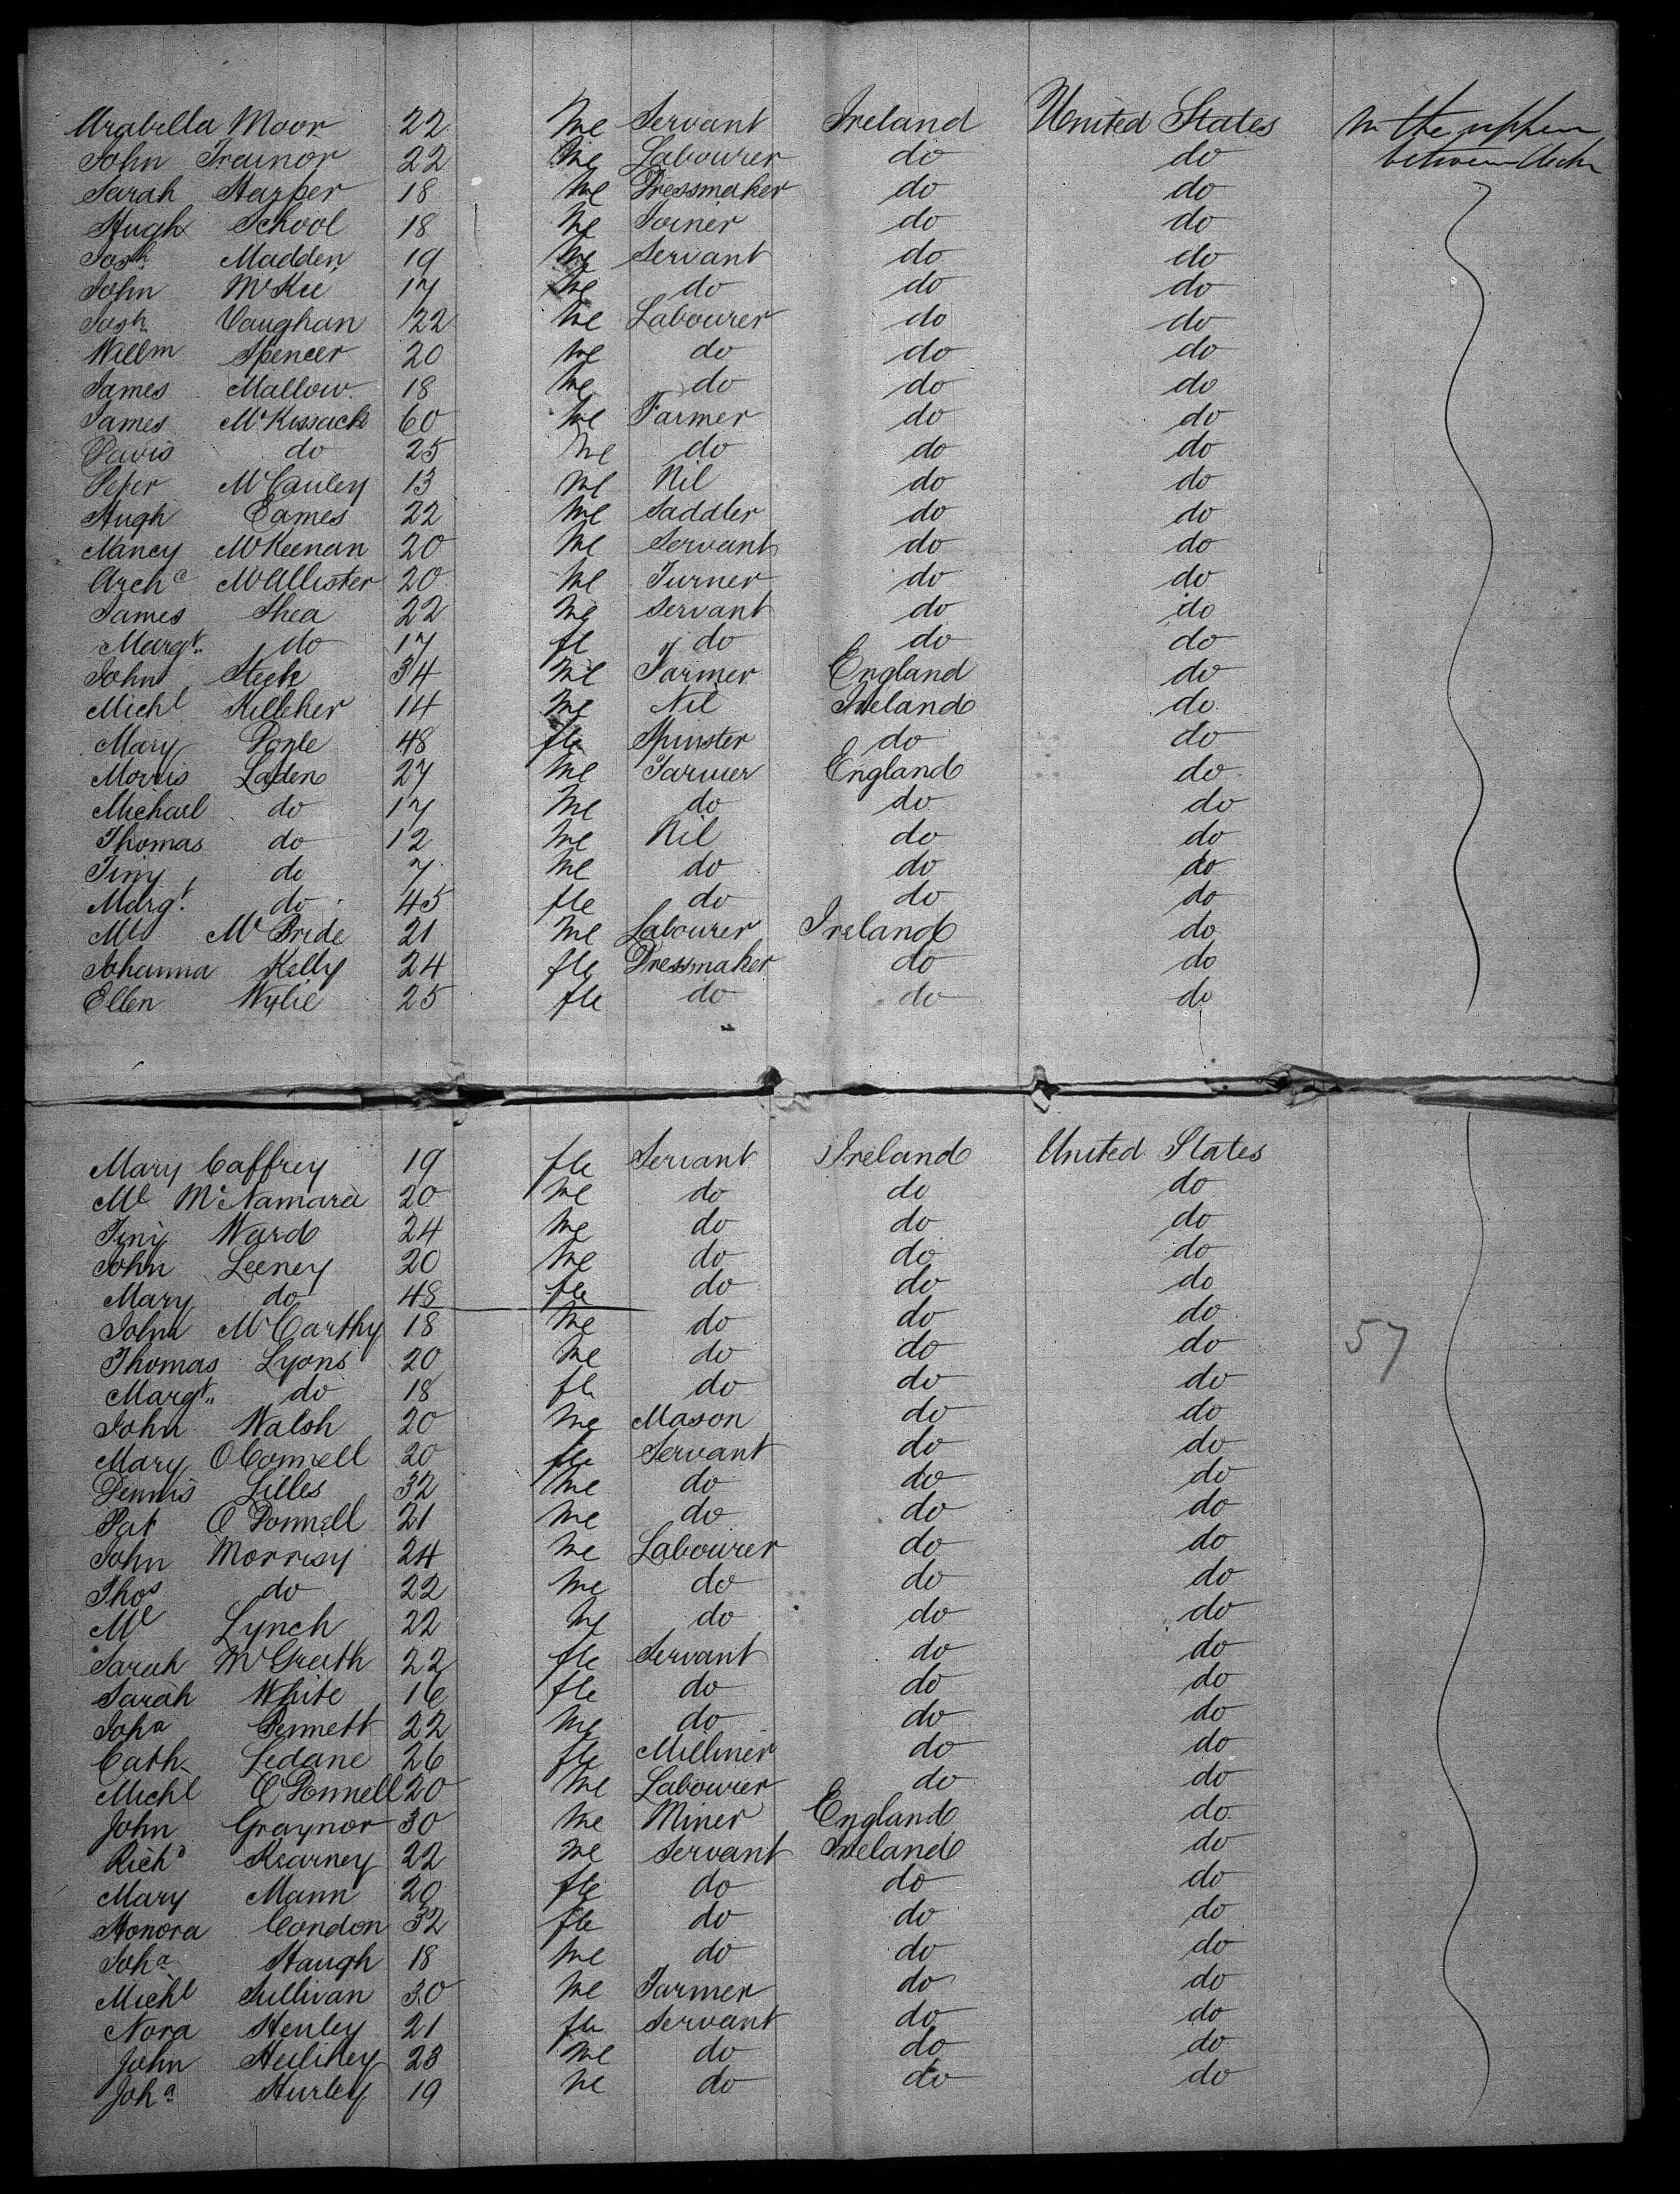 Arabella Moor 22 Me Servant Ireland United States In the upper
John Trainor 22 Me Labourer do do between decks
Sarah Harper 18 Me Dressmaker do do
Hugh School 18 Me Joiner do do
Josh Madden 19 Me Servant do do
John McKee 17 Me do do do
Josh Vaughan 22 Me Labourer do do
Willm Spencer 20 Me do do do
James Mallow 18 Me do do do
James McKissack 60 Me Farmer do do
Davis do 25 Me do do do
Peter McCauley 13 Me Nil do do
Hugh Eames 22 Me Saddler do do
Nancy McKeenan 20 Me Servant do do
Archd McAllister 20 Me Turner do do
James Shea 22 Me Servant do do
Margt do 17 fle do do do
John Steek 34 Me Farmer England do
Michl Kelleher 14 Me Nil Ireland do
Mary Doyle 48 fle Spinster do do
Morris Laden 27 Me Farmer England do
Michael do 17 Me do do do
Thomas do 12 Me Nil do do
Jiny do 7 Me do do do
Margt do 45 fle do do do
Ml McBride 21 Me Labourer Ireland do
Johanna Kelly 24 fle Dressmaker do do
Ellen Wylie 25 fle do do do
Mary Caffrey 19 fle Servant Ireland United States
Ml McNamara 20 Me do do do
Jiny Ward 24 Me do do do
John Leeney 20 Me do do do
Mary do 48 fle do do do
John McCarthy 18 Me do do do
57
Thomas Lyons 20 Me do do do
Margt do 18 fle do do do
John Walsh 20 Me Mason do do
Mary OConnell 20 fle Servant do do
Dennis Lilles 32 Me do do do
Pat O Donnell 21 Me do do do
John Morrisy 24 Me Labourer do do
Thos do 22 Me do do do
Ml Lynch 22 Me do do do
Sarah McGrath 22 fle Servant do do
Sarah White 16 fle do do do
Joha Bennett 22 Me do do do
Cath Sedane 26 fle Milliner do do
Michl O'Donnell 20 Me Labourer do do
John Graynor 30 Me Miner England do
Richd Kearney 22 Me Servant Ireland do
Mary Mann 20 fle do do do
Honora Condon 32 fle do do do
Joha Haugh 18 Me do do do
Michl Sullivan 30 Me Farmer do do
Nora Henley 21 fle Servant do do
John 23 Me do do do
Joha Hurley 19 Me do do do